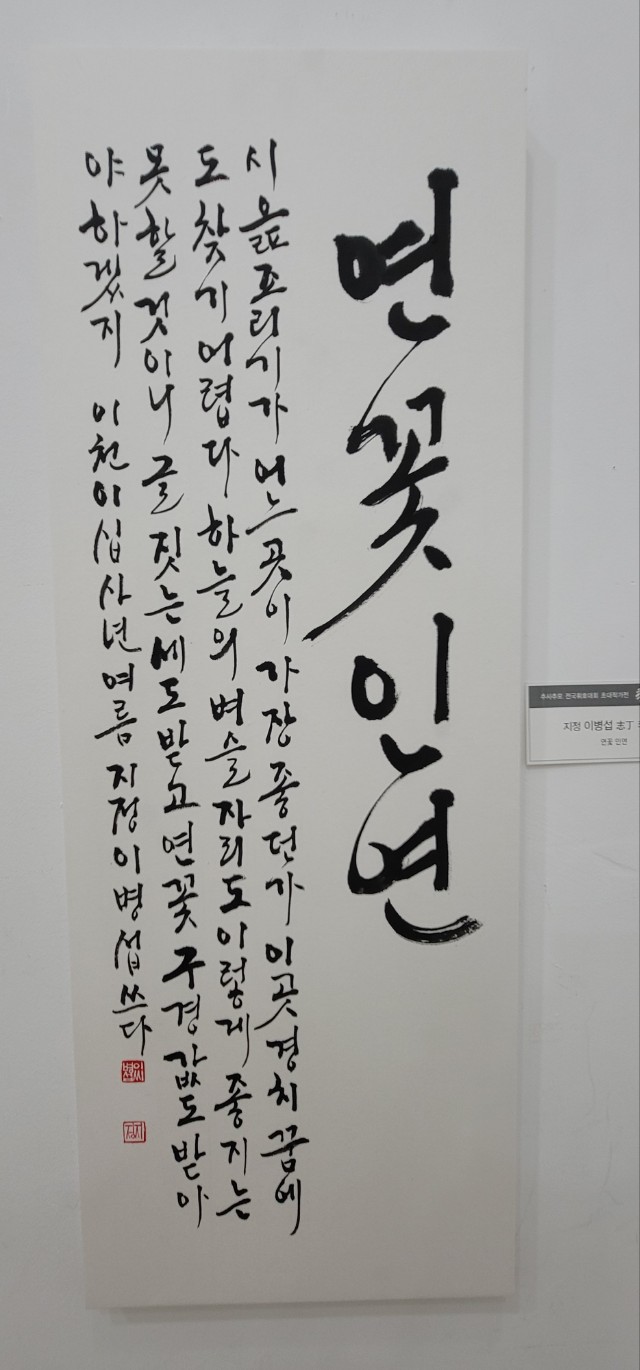 연꽃인연
시 읊조리기가 어느 곳이 가장 좋던가 이곳 경치 꿈에
도 찾기 어렵다 하늘의 벼슬자리도 이렇게 좋지는
못할 것이니 글 짓는 세도 받고 연꽃 구경값도 받아
야 하겠지 이천이십사년 여름 지정 이병섭 쓰다
추사추모 전국휘호대회 초대작가전
지정 이병섭 志丁
연꽃 인연